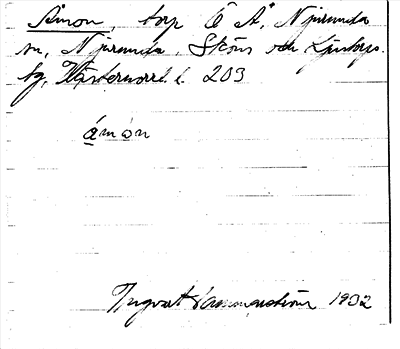 Åmon, torp Ö A, Njurunda
sn, Njurunda, Sköns och Ljustorps
tg, Västernorrl. l. 203
ámòn
Ingvar Hammarström 1932